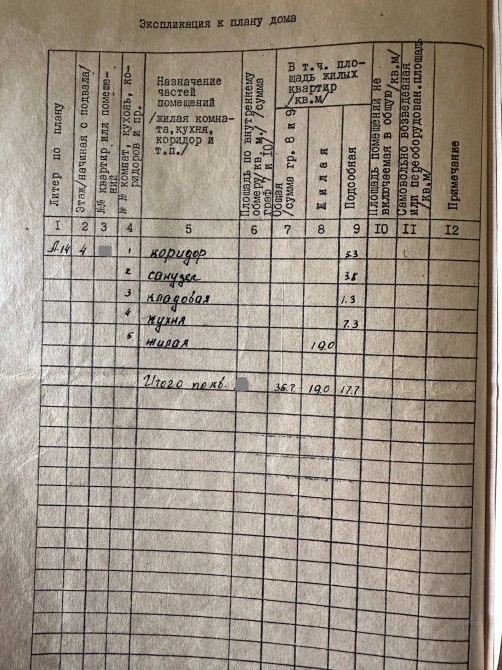 Экспликация к плану дома
Литер по плану
Этаж/начиная о подвала/
№№ квартир или помеще-
ний
№ № комнат, кухонь, ко-
ридоров и пр.
Назначение
частей
помещений
/жилая комна-
та,кухня,
коридор и
т.п./
Площадь по внутреннему
обмеру/кв.м./ /сумма
граф 7 и 10/
В т.ч. пло-
щадь жилых
квартир
/кв.м/
Общая
/сумма гр. 8 и 9
Жилая
Подсобная
Площадь помещений не
включаемая в общую/кв.м/
Самовольно возведенная
или переоборудован.площадь
/кв.м/
Примечание
1 2 3 4 5 6 7 8 9 10 11 12
А-14 4 1 коридор 5.3
2 санузел 3.8
3 кладовая 1.3
4 кухня 7.3
5 жилая 19.0
Итого по кв. 36.7 19.0 17.7